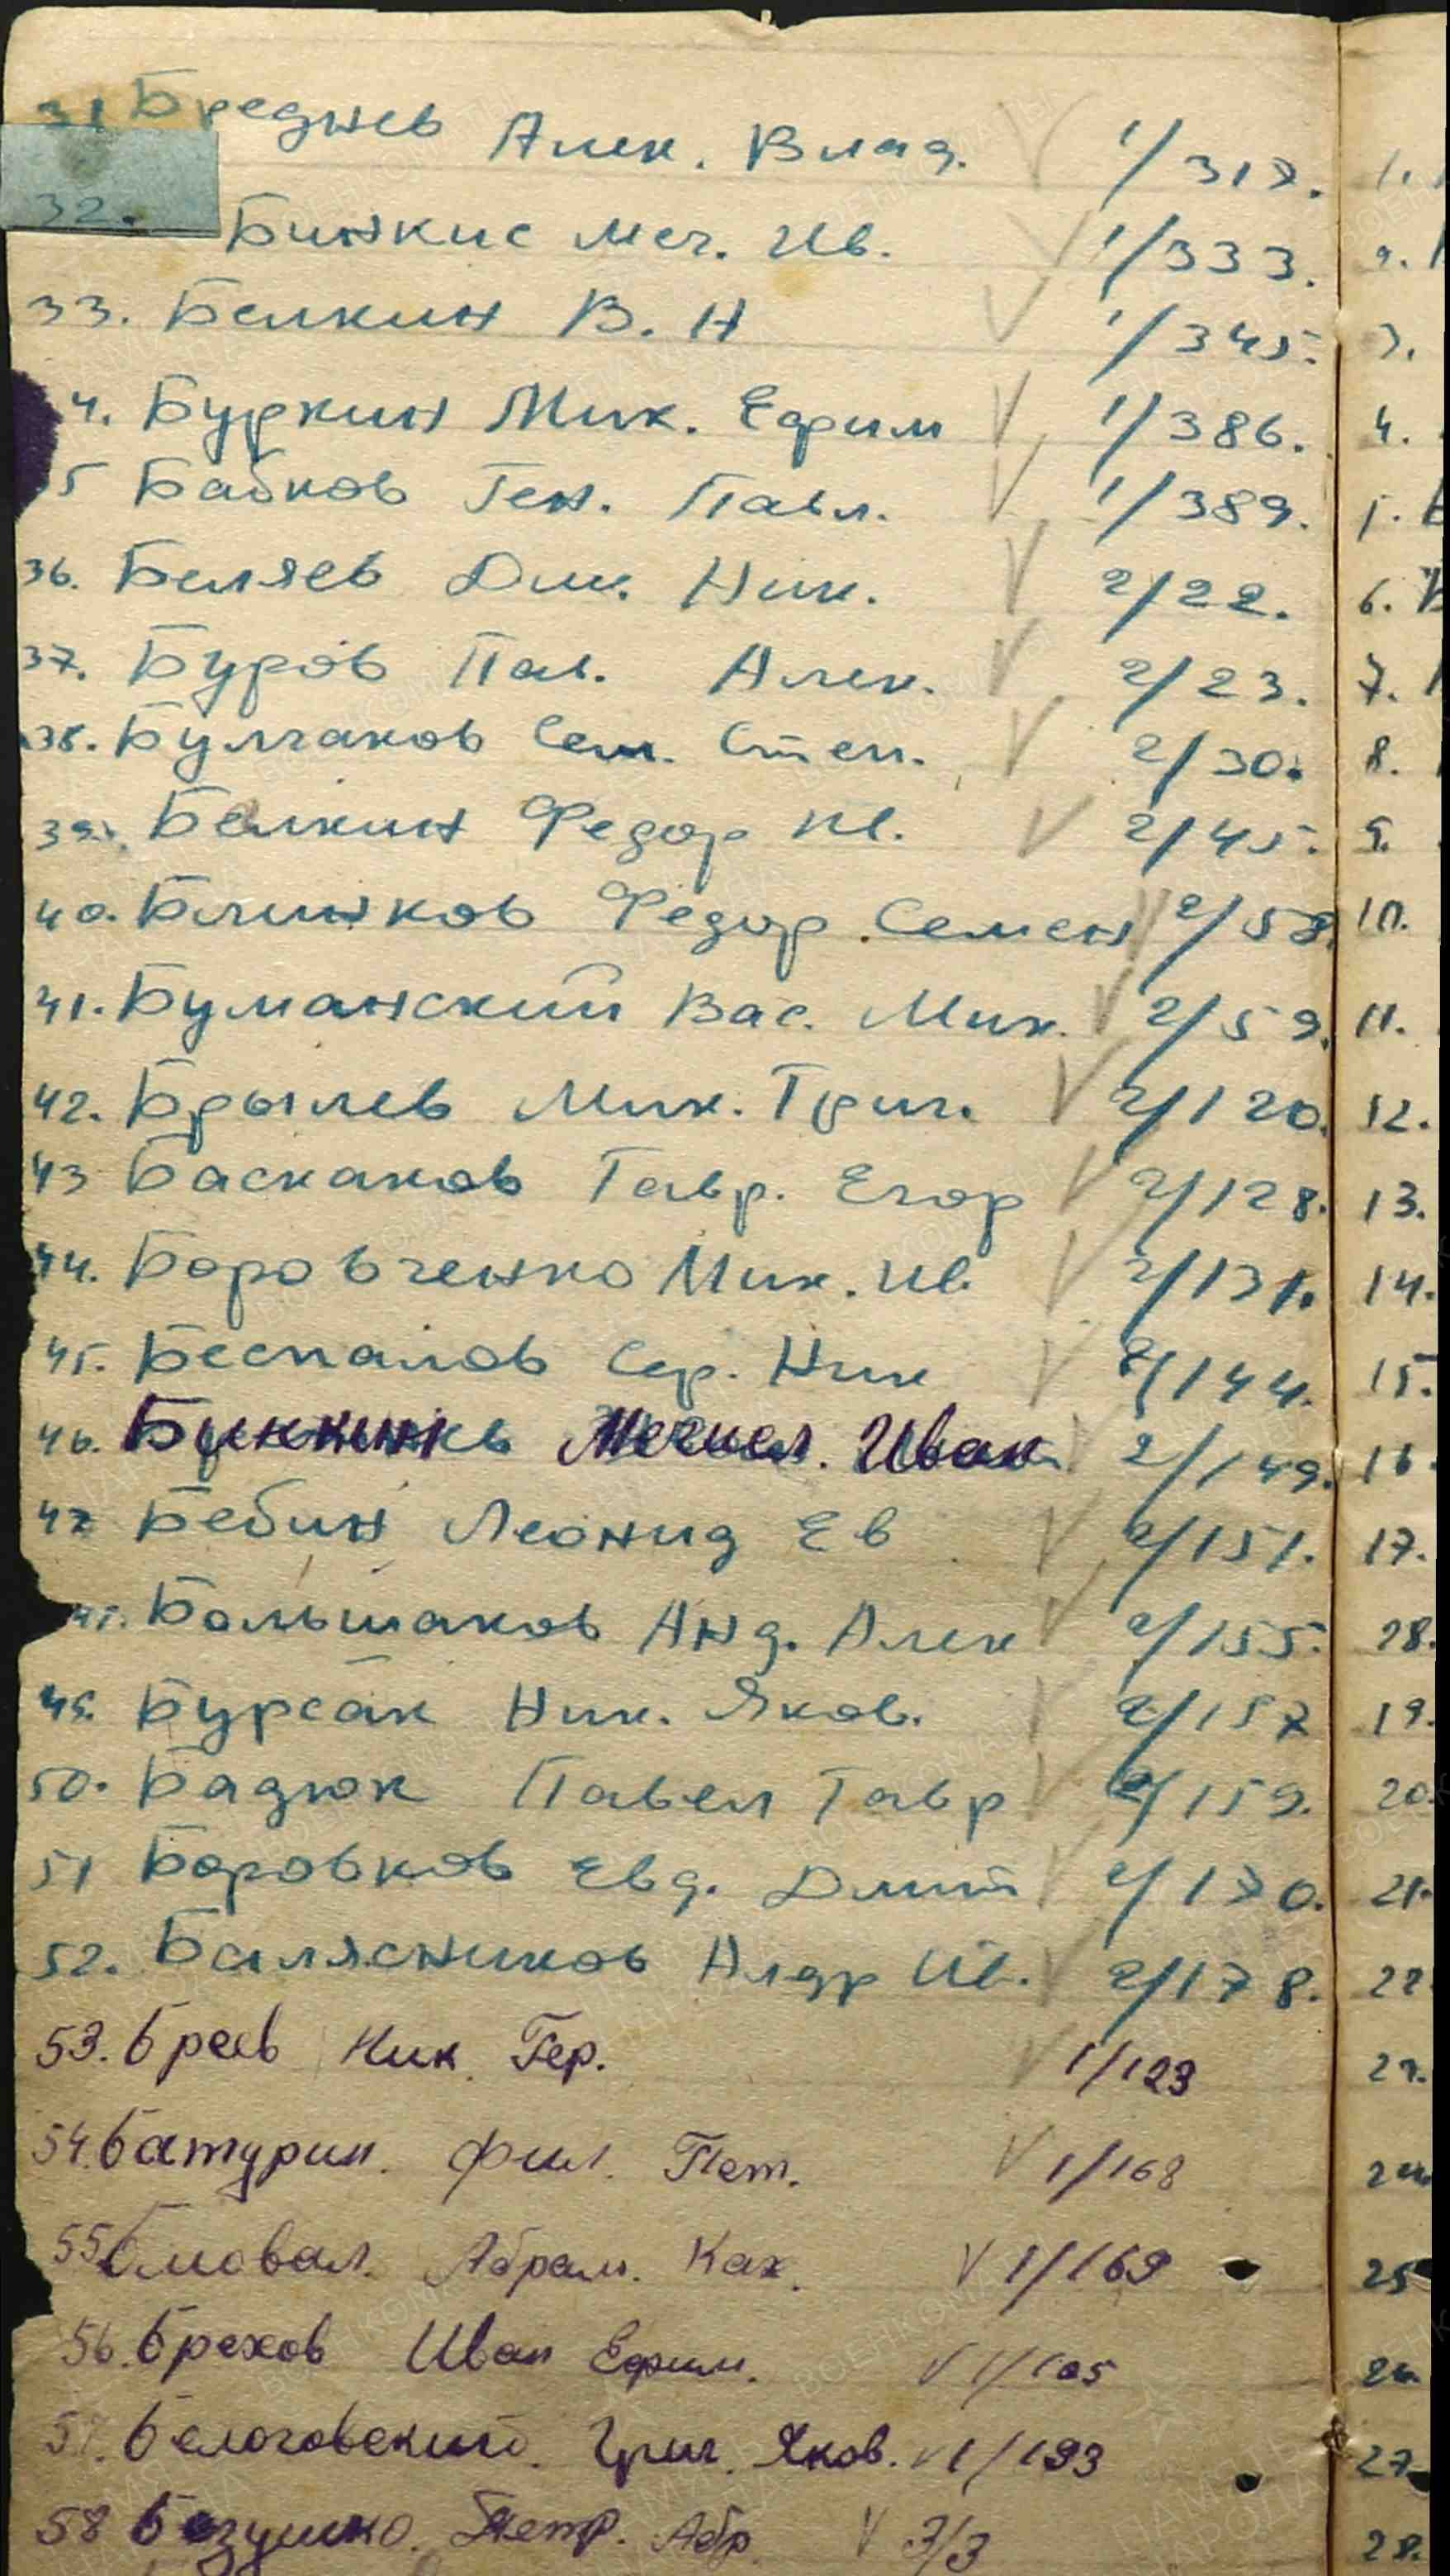 31 Бреднев Алек. Влад. V 1/317.
32. Бинкис Меч. Ив. V 1/333.
33. Белкин В. Н V 1/345.
4. Буркин Мих. Ефим V 1/386.
5 Бабков Ген. Павл. V 1/389.
36. Беляев Дм. Ник. V 2/22.
37. Буров Пав. Алек. V 2/23.
38. Булгаков Сем. Степ. V 2/30.
39. Белкин Федор Ив. V 2/45.
40. Блинков Федор Семен V 2/58.
41. Буманский Вас. Мих. V 2/59.
42. Брылев Мих. Григ. V 2/120.
43 Баскаков Гавр. Егор V 2/128.
44. Боровченко Мих. Ив. V 2/131.
45. Беспалов Сер. Ник V 2/144.
46. Ивак. 2/149.
47 Бебин Леонид Ев V 2/151.
Большаков Анд. Алек V 2/155.
49. Бурсак Ник. Яков. V 2/157
50. Бадюк Павел Гавр V 2/159.
51 Боровков Евд. Дмит V 2/170.
52. Балясников Алдр Ив. V 2/178.
53. Бреев Ник. Гер. V 1/123
54. Батурин. Фил. Пет. V 1/168
55 Абрам. Ках. V 1/169
56. Брехов Иван Ефим. V 1/105
57. Белоговский. Григ. Яков. V 1/193
58 Безушко. Петр. Абр V 3/3
1.
3.
4.
6.
7.
8.
9.
10.
11.
12.
13.
14.
15.
16.
17.
28.
19.
20.
21.
22
25
26.
27
28.